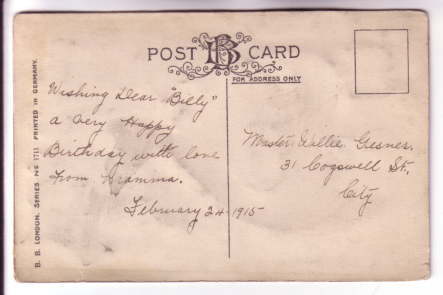 POST CARD
FOR ADDRESS ONLY
Wishing Dear "Billy"
a Very Happy
Birthday with love
From Gramma.
February 24 - 1915
Master Wallie Gesner.
31 Cogswell St.
City
B. B. LONDON. SERIES No E 1711 PRINTED IN GERMANY.